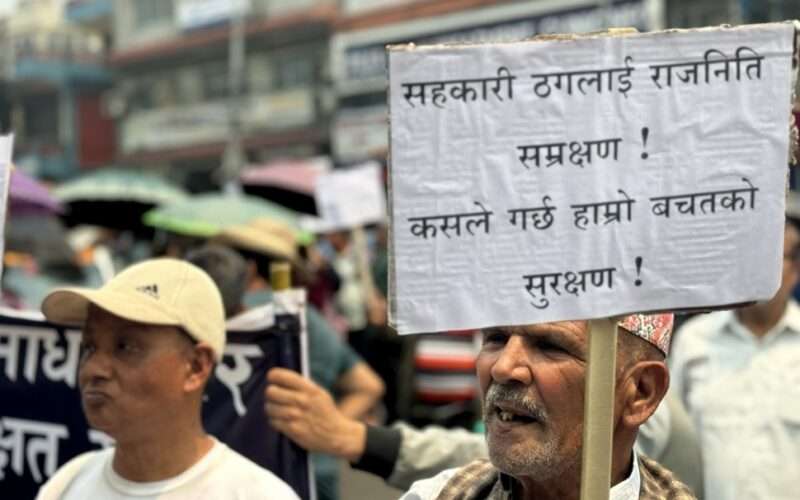 सहकारी ठगलाई राजनिति
सम्रक्षण !
कसले गर्छ हाम्रो बचतको
सुरक्षण !